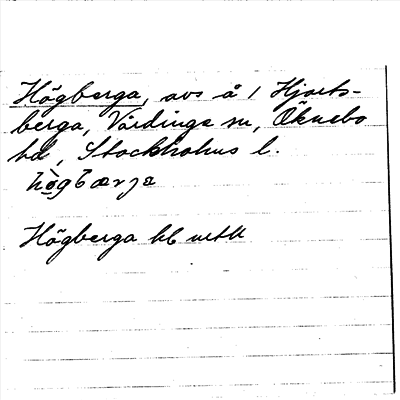 Högberga, avs å 1 Hjorts-
berga, Vårdinge sn, Öknebo
hd, Stockholms l.
hö̀gbærja
Högberga kb